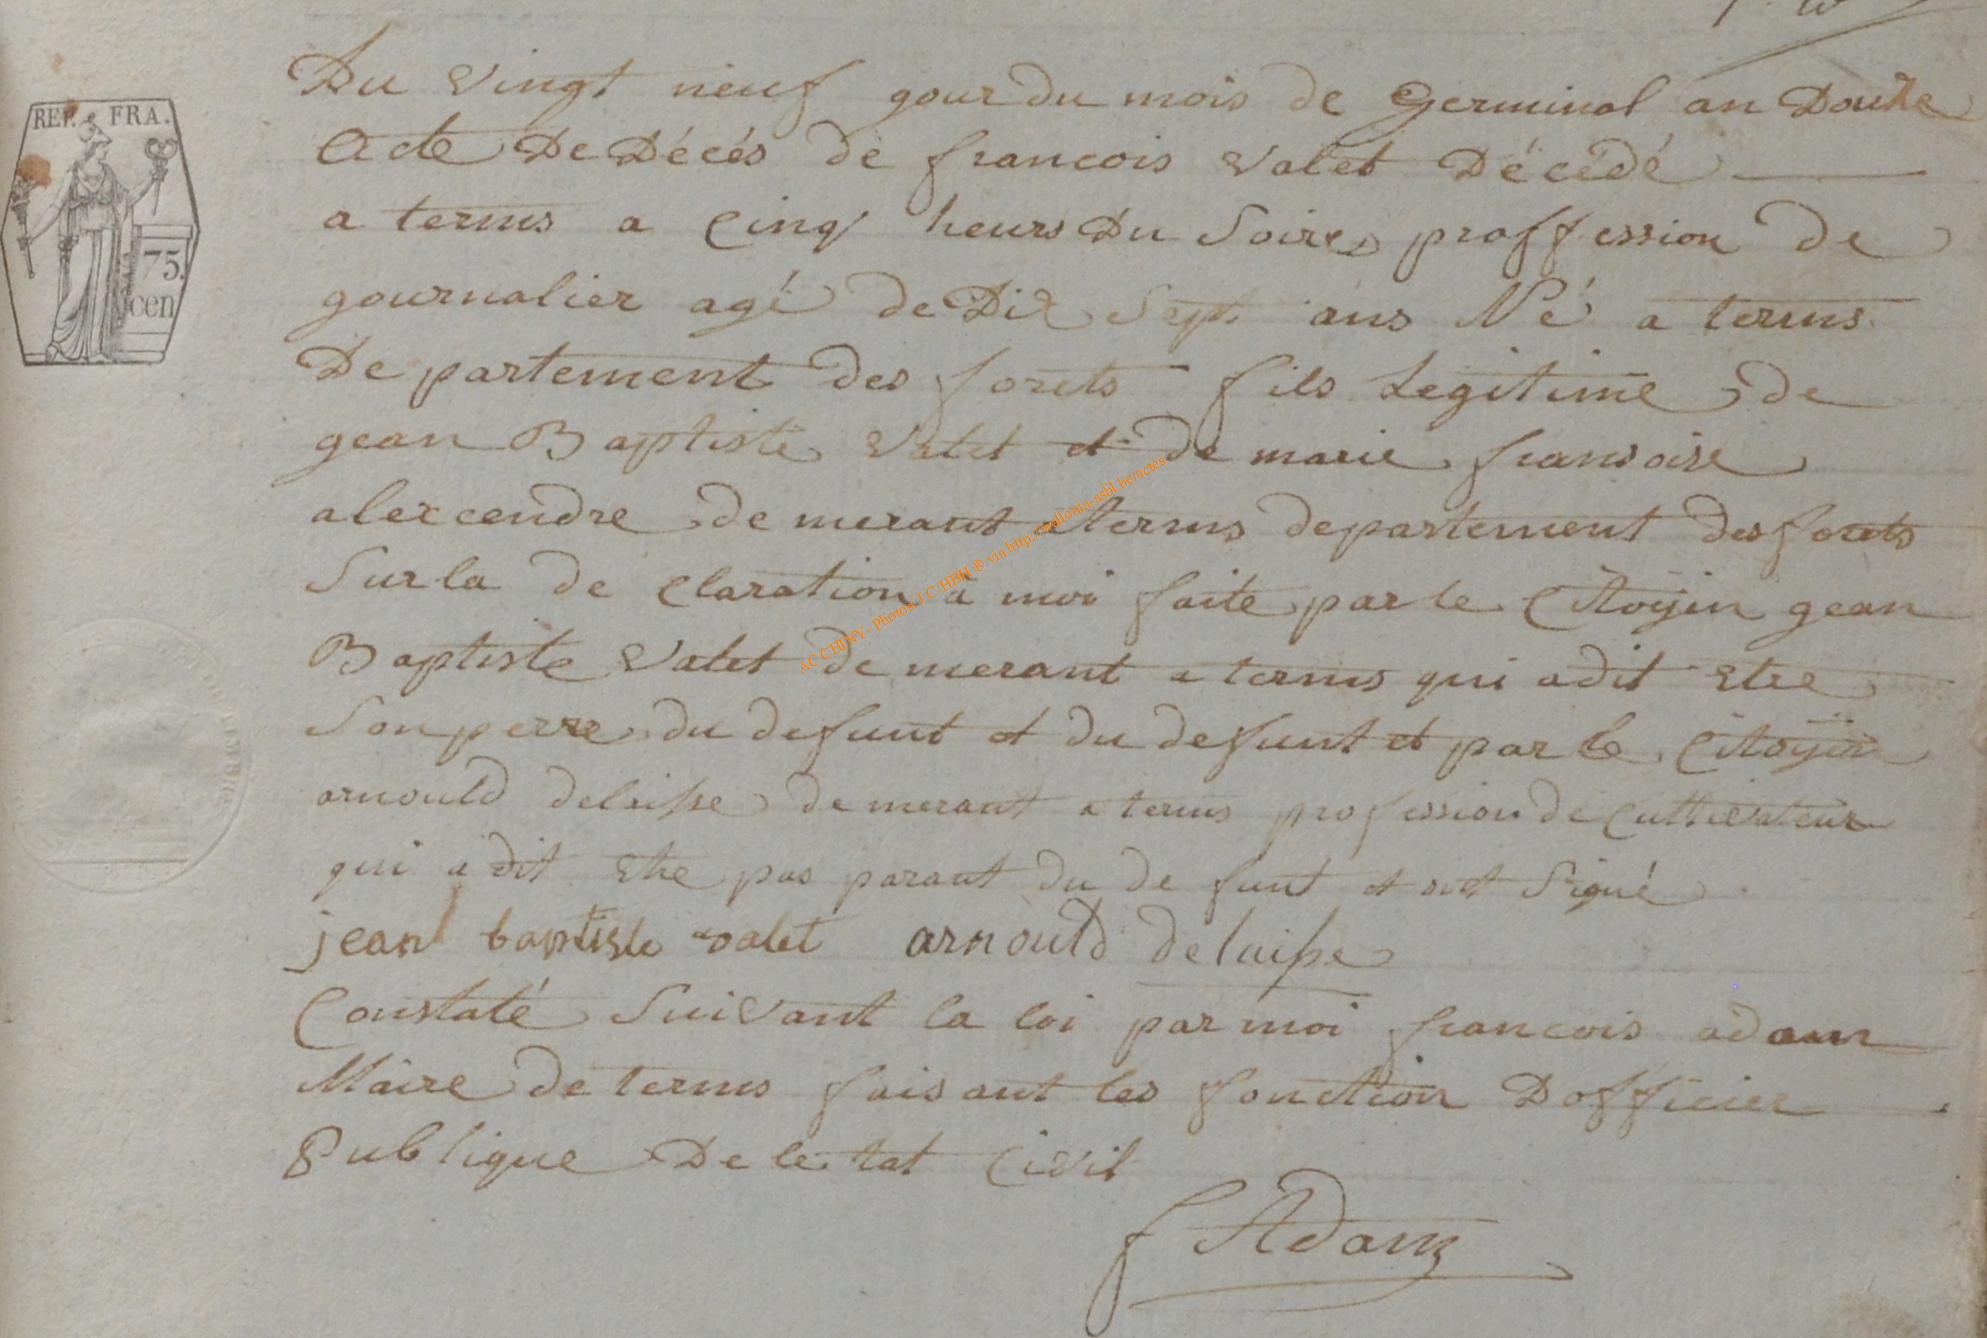 Du vingt neuf gour du mois de Germinal an Douze
Acte De Décés de francois valet Décédé
a terms a cinq heurs Du Soire proffession de
gournalier agé de Dix Sept ans Né a terms
De partement des forets fils Legitime de
gean Baptiste Valet et de marie fransoise
alexcendre de merant a terms departement des forets
Sur la de claration à moi faite par le Citoyin gean
Baptiste Valet de merant a terms qui a dit Etre
Son perre du defunt et du defunt et par le Citoyin
arnould delaisse de merant a terms profession de Cultivateur
qui a dit Etre pas parant du de funt et ont Signé
jean baptiste valet arnould delaisse
Constaté Suivant la loi par moi francois adam
Maire de terms faisant les fonction Dofficier
Publique De le tat Civil
f Adam
REP. FRA.
75.
cen
AC CHINY - Photos J C HBH ® via http://wallonia-asbl.be/actes